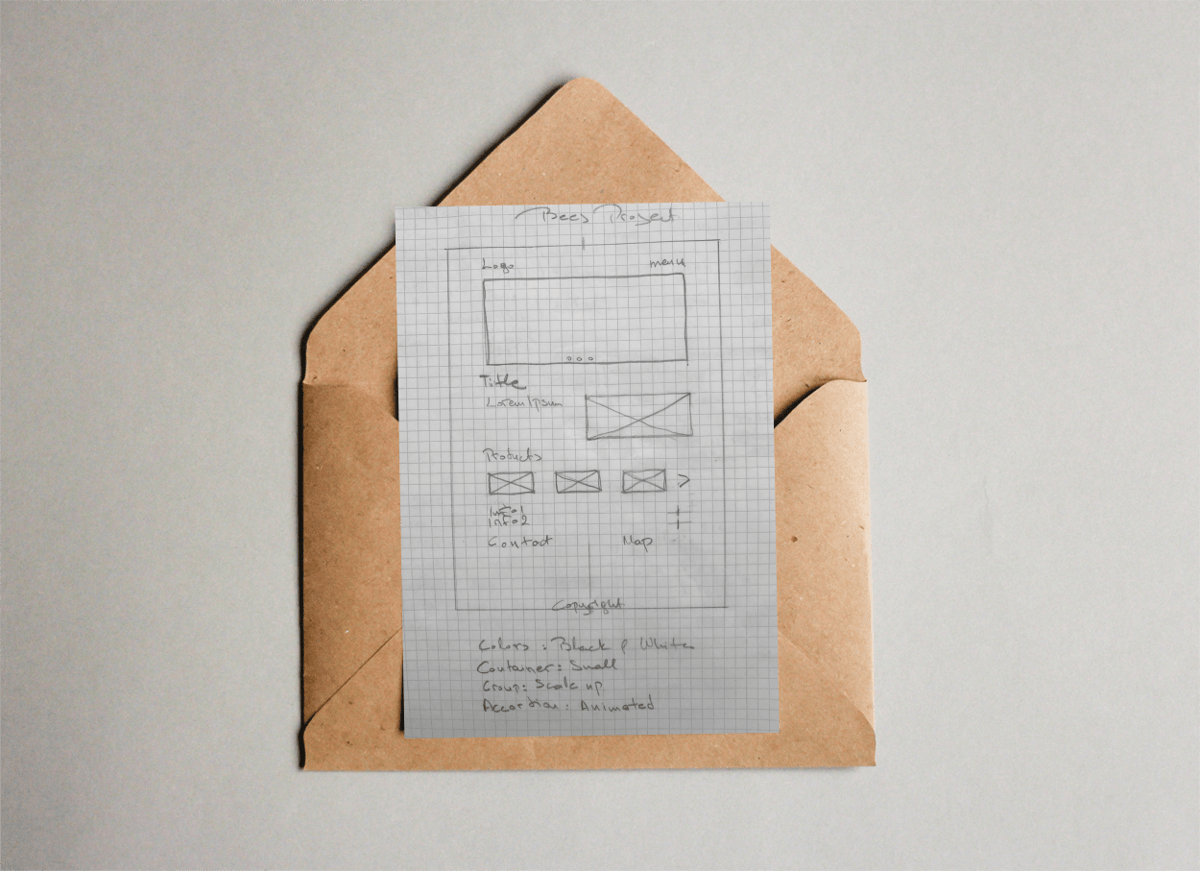 Bees Project
Logo menu
Title
Lorem Ipsum
Products
>
Info1 +
Info2 +
Contact Map
Copyright
Colors : Black & White
Container : Small
Group : Scale up
Accordion : Animated